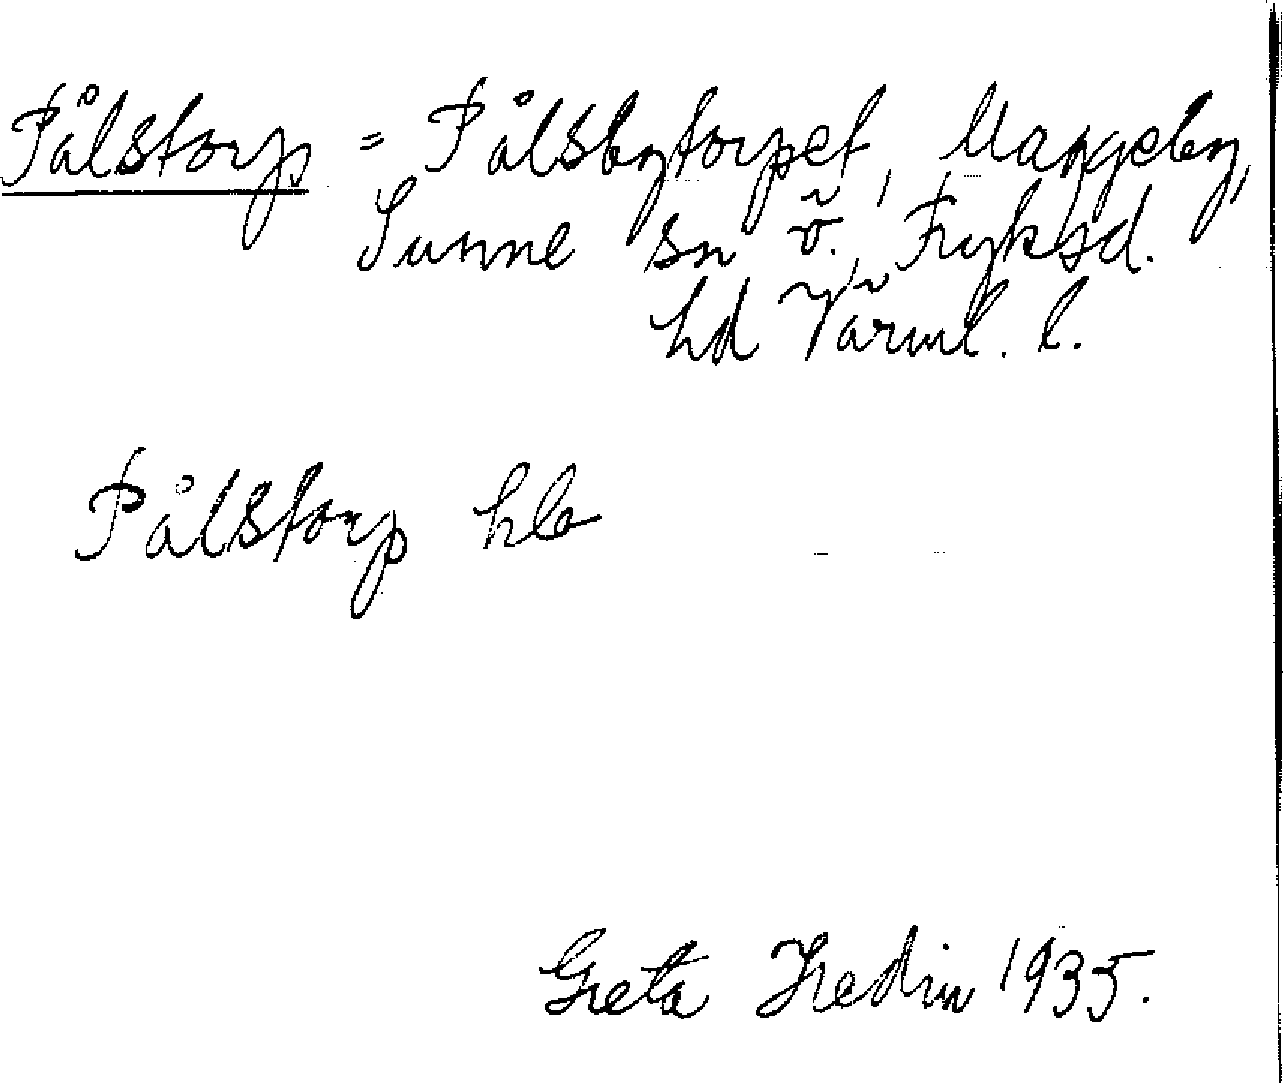 Pålstorp = Pålsbytorpet, Mangeby,
Sunne sn ö. Fryksd.
hd Värml. l.
Pålstorp hb
Greta Hedin 1935.